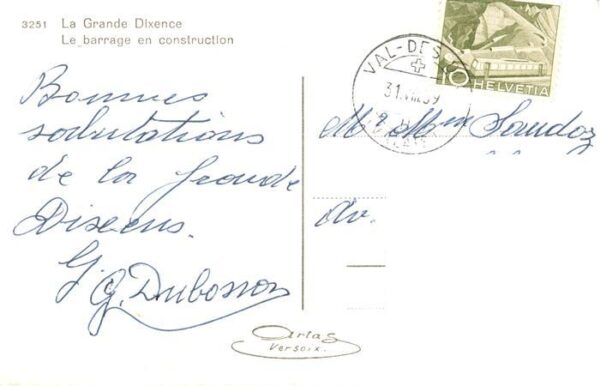 3251 La Grande Dixence
Le barrage en construction
Bonnes
salutations
de la Grande
Dixence.
G. Dubosson
VAL-DES-
31.VIII.59
10 HELVETIA
Mr & Mme Sandoz
Av.
Artas
Versoix.